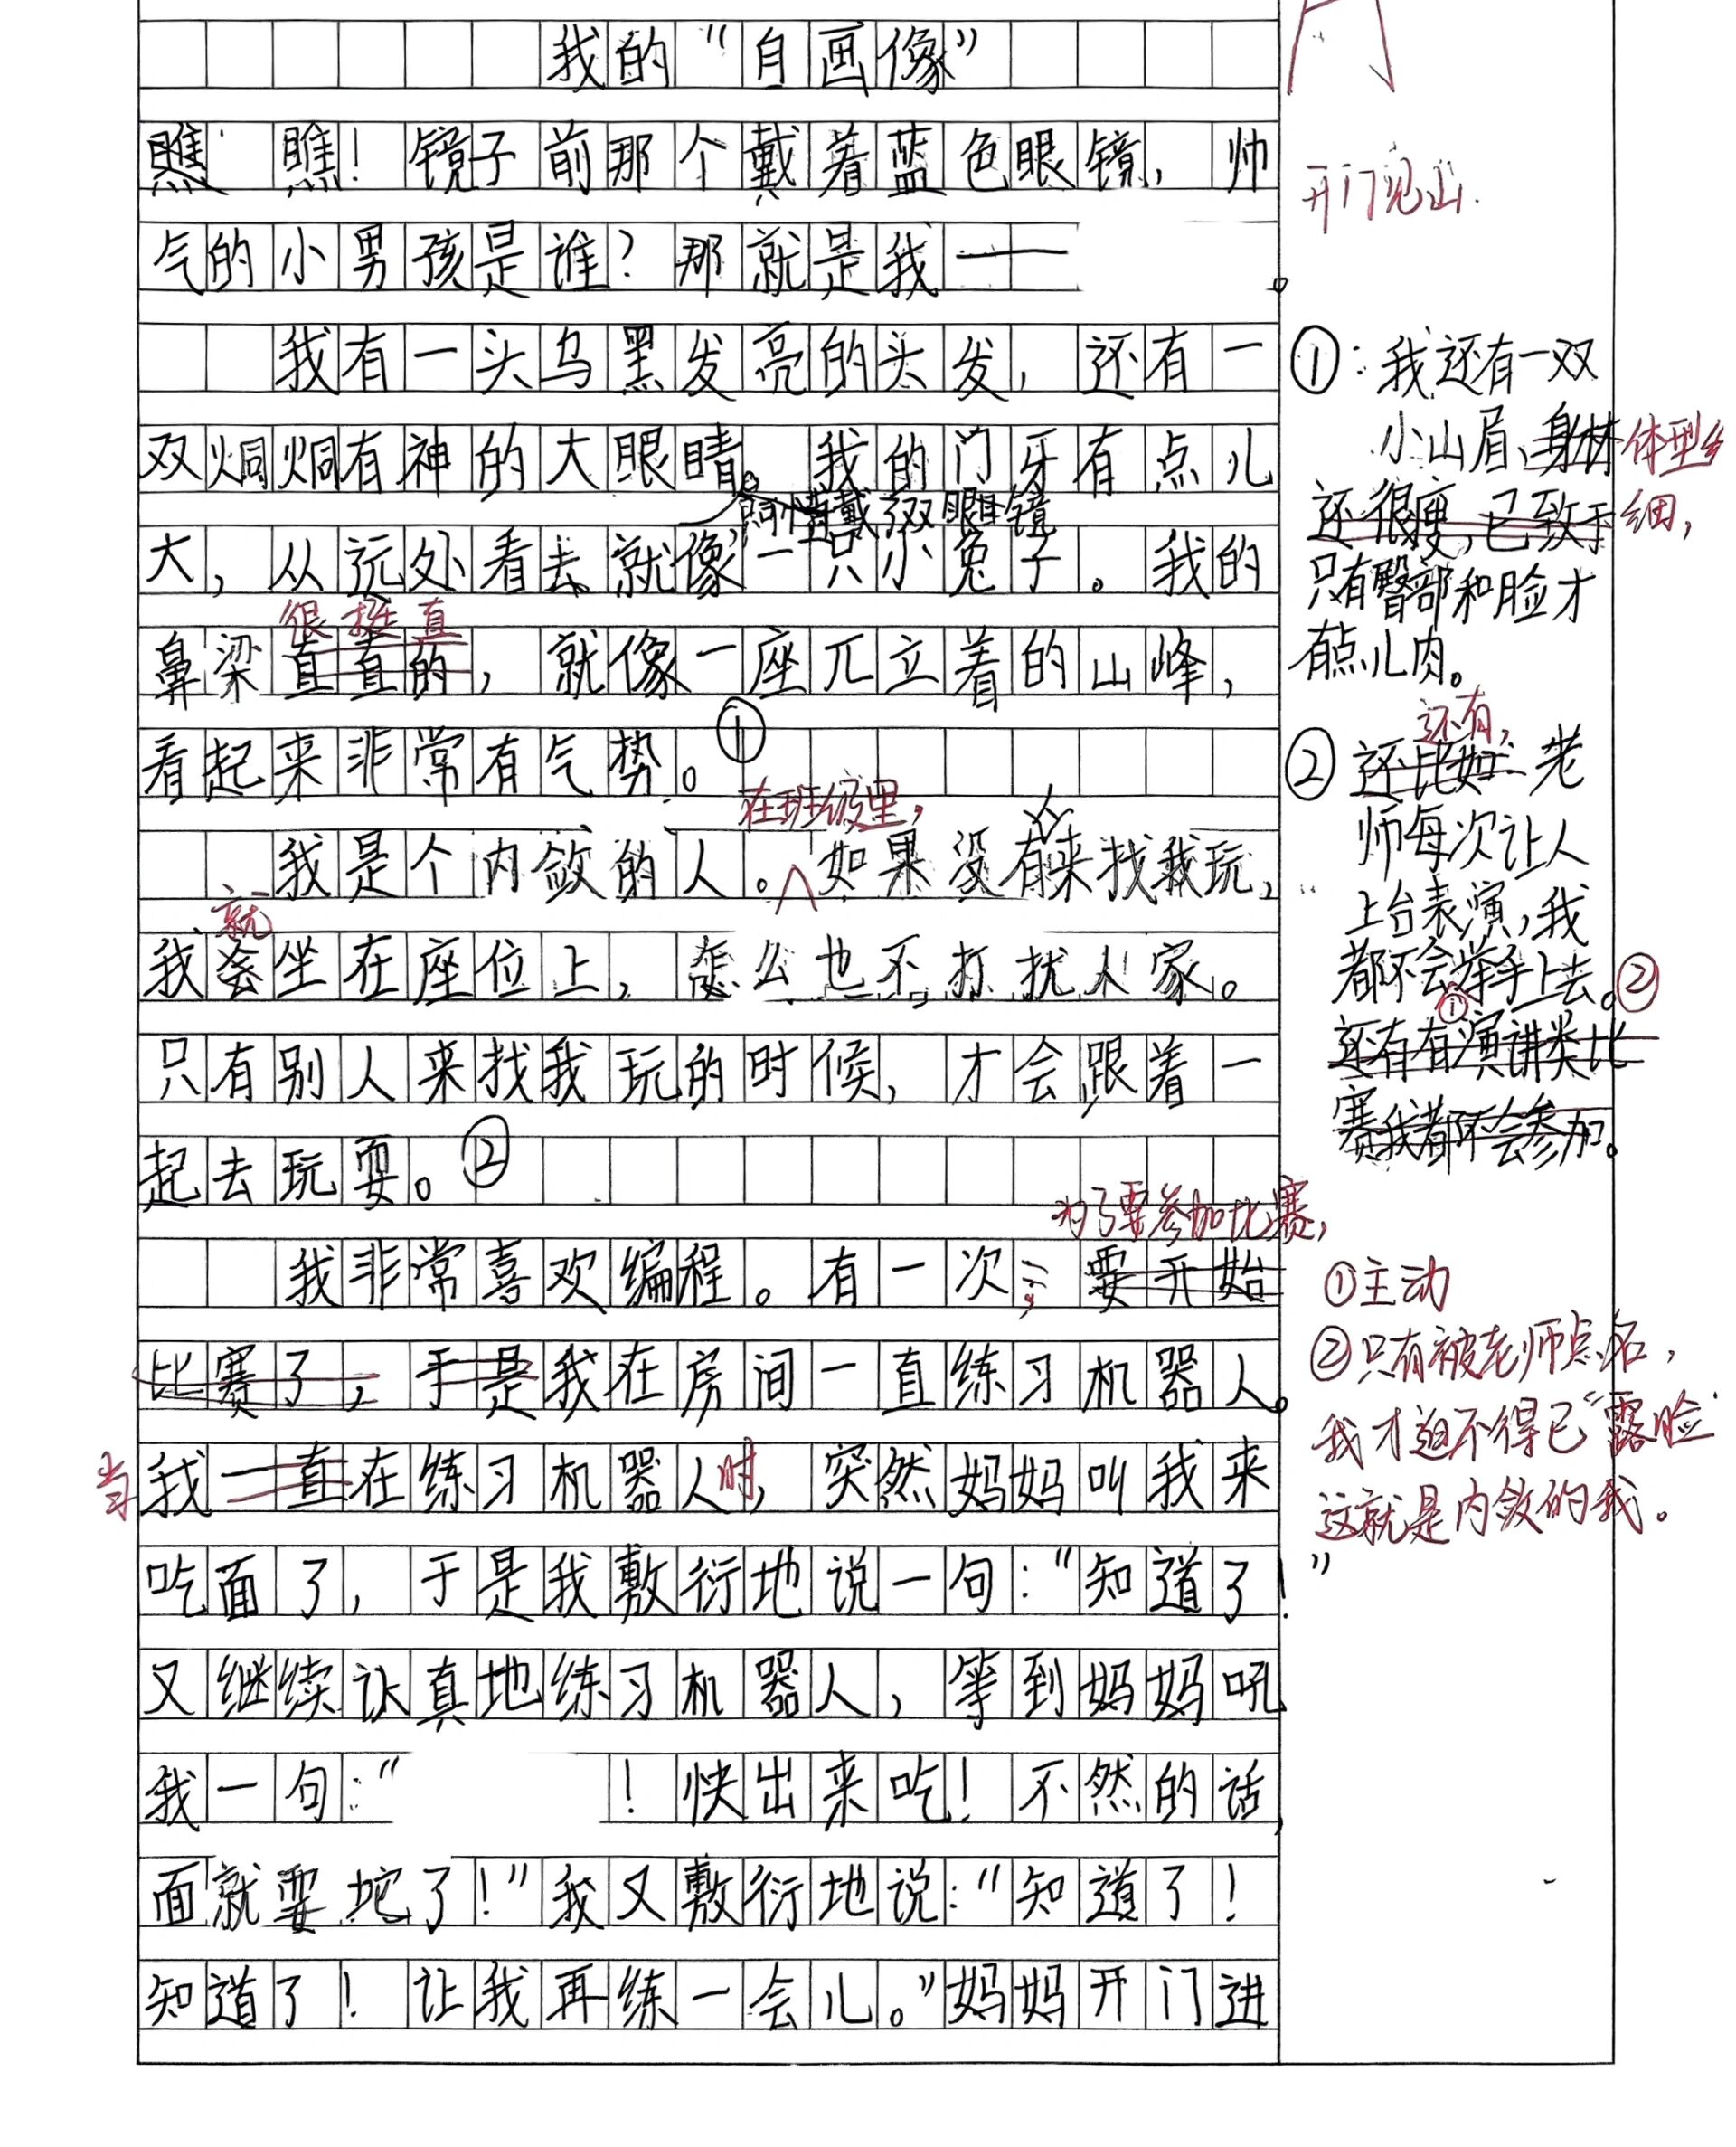 我的“自画像”
瞧！瞧！镜子前那个戴着蓝色眼镜，帅
开门见山.
气的小男孩是谁？那就是我——。
我有一头乌黑发亮的头发，还有一
双炯炯有神的大眼睛。我的门牙有点儿
戴了双眼镜
大，从远处看去就像一只小兔子。我的
很挺直
鼻梁直直的，就像一座兀立着的山峰，
看起来非常有气势。①
①：我还有一双
小山眉、身材体型纤
还很瘦，已致于细，
只有臀部和脸才
有点儿肉。
在班级里，
我是个内敛的人。如果没有人来找我玩，
就
我会坐在座位上，怎么也不打扰人家。
只有别人来找我玩的时候，才会跟着一
起去玩耍。②
还有，
②还比如老
师每次让人
上台表演，我
都不会举手上去。②
①
还有有演讲类比
赛我都不会参加。
①主动
②只有被老师点名，
我才迫不得已“露脸”
这就是内敛的我。
为了要参加比赛，
我非常喜欢编程。有一次，要开始
比赛了，于是我在房间一直练习机器人。
当我一直在练习机器人时，突然妈妈叫我来
吃面了，于是我敷衍地说一句：“知道了！”
又继续认真地练习机器人，等到妈妈吼
我一句：“！快出来吃！不然的话，
面就要坨了！”我又敷衍地说：“知道了！
知道了！让我再练一会儿。”妈妈开门进